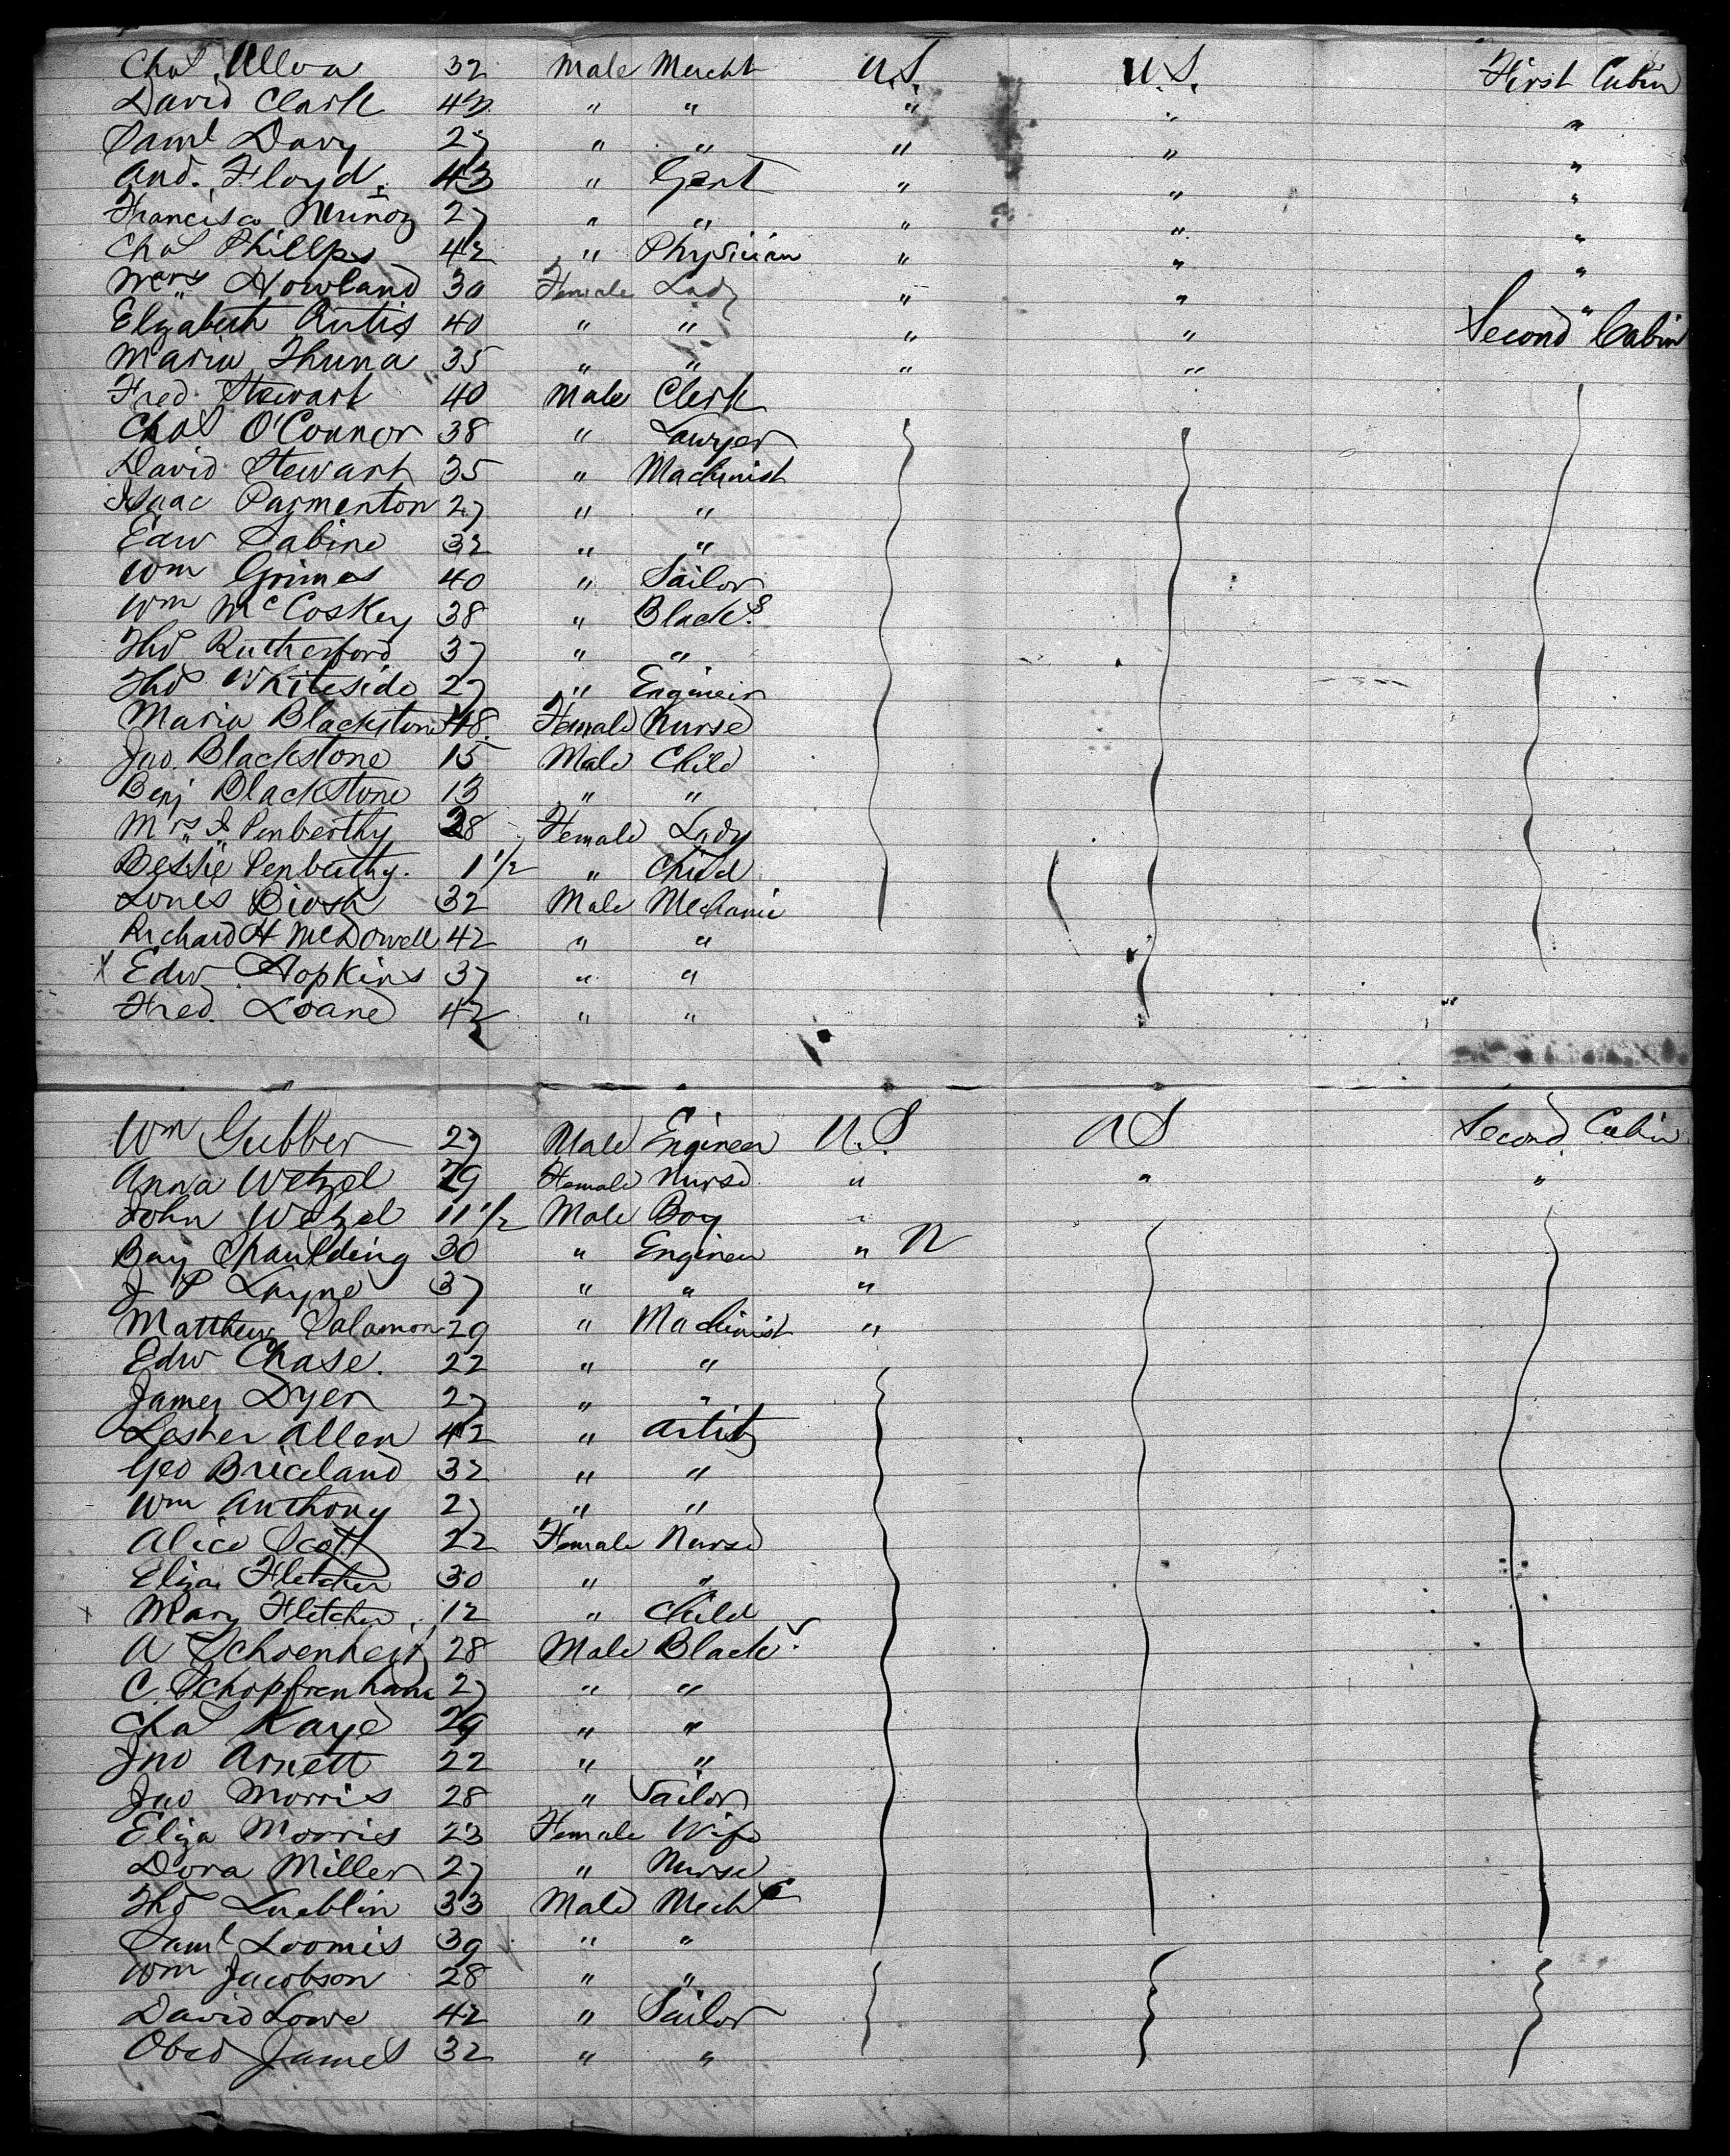 Chas Ulloa 32 Male Mercht U.S. U.S. First Cabin
David Clark 42 " " " " "
Saml Davy 27 " " " " "
And. Floyd 43 " Gent " " "
Francisco Muñoz 27 " " " " "
Chas Phillps 42 " Physician " " "
Mrs Howland 30 Female Lady " " "
Elizabeth 40 " " " " Second Cabin
Maria 35 " " " "
Fred Stewart 40 Male Clerk
Chas O'Connor 38 " Lawyer
David Stewart 35 " Machinist
Isaac Parmenton 27 " "
Edw Sabine 32 " "
Wm Grimes 40 " Sailor
Wm McCoskey 38 " Black.s
Thos Rutherford 37 " "
Thos Whiteside 27 " Engineir
Maria Blackstone 48. Female Nurse
Jno. Blackstone 15 Male Child
Benj Blackstone 13 " "
Mrs J Penberthy 28 Female Lady
Bessie Penberthy. 1 1/2 " Child
32 Male Mechanic
Richard H McDowell 42 " "
X Edw Hopkins 37 " "
Fred. Loane 42 " "
Wm Gubber 27 Male Engineer U.S U S Second Cabin
Anna Wetzel 29 Female Nurse " " "
John Wetzel 11 1/2 Male Boy "
Bay Spaulding 30 " Engineer "
J P Layne 37 " " "
Matthew Salamon 29 " Machinist "
Edw Chase. 22 " "
James Dyer 27 " "
Lester Allen 42 " Artist
Geo Briceland 32 " "
Wm Anthony 27 " "
Alice Scott 22 Female Nurse
Eliza Fletcher 30 " "
x Mary Fletcher 12 " Child
A Schoenheit 28 Male Black.s
C. 27 " "
Chas Kaye 29 " "
Jno Arnett 22 " "
Jno Morris 28 " Sailor
Eliza Morris 23 Female Wife
Dora Miller 27 " Nurse
Thos Lueblin 33 Male Mech c
Saml Loomis 39 " "
Wm Jacobson 28 " "
David Lowe 42 " Sailor
Obed James 32 " "